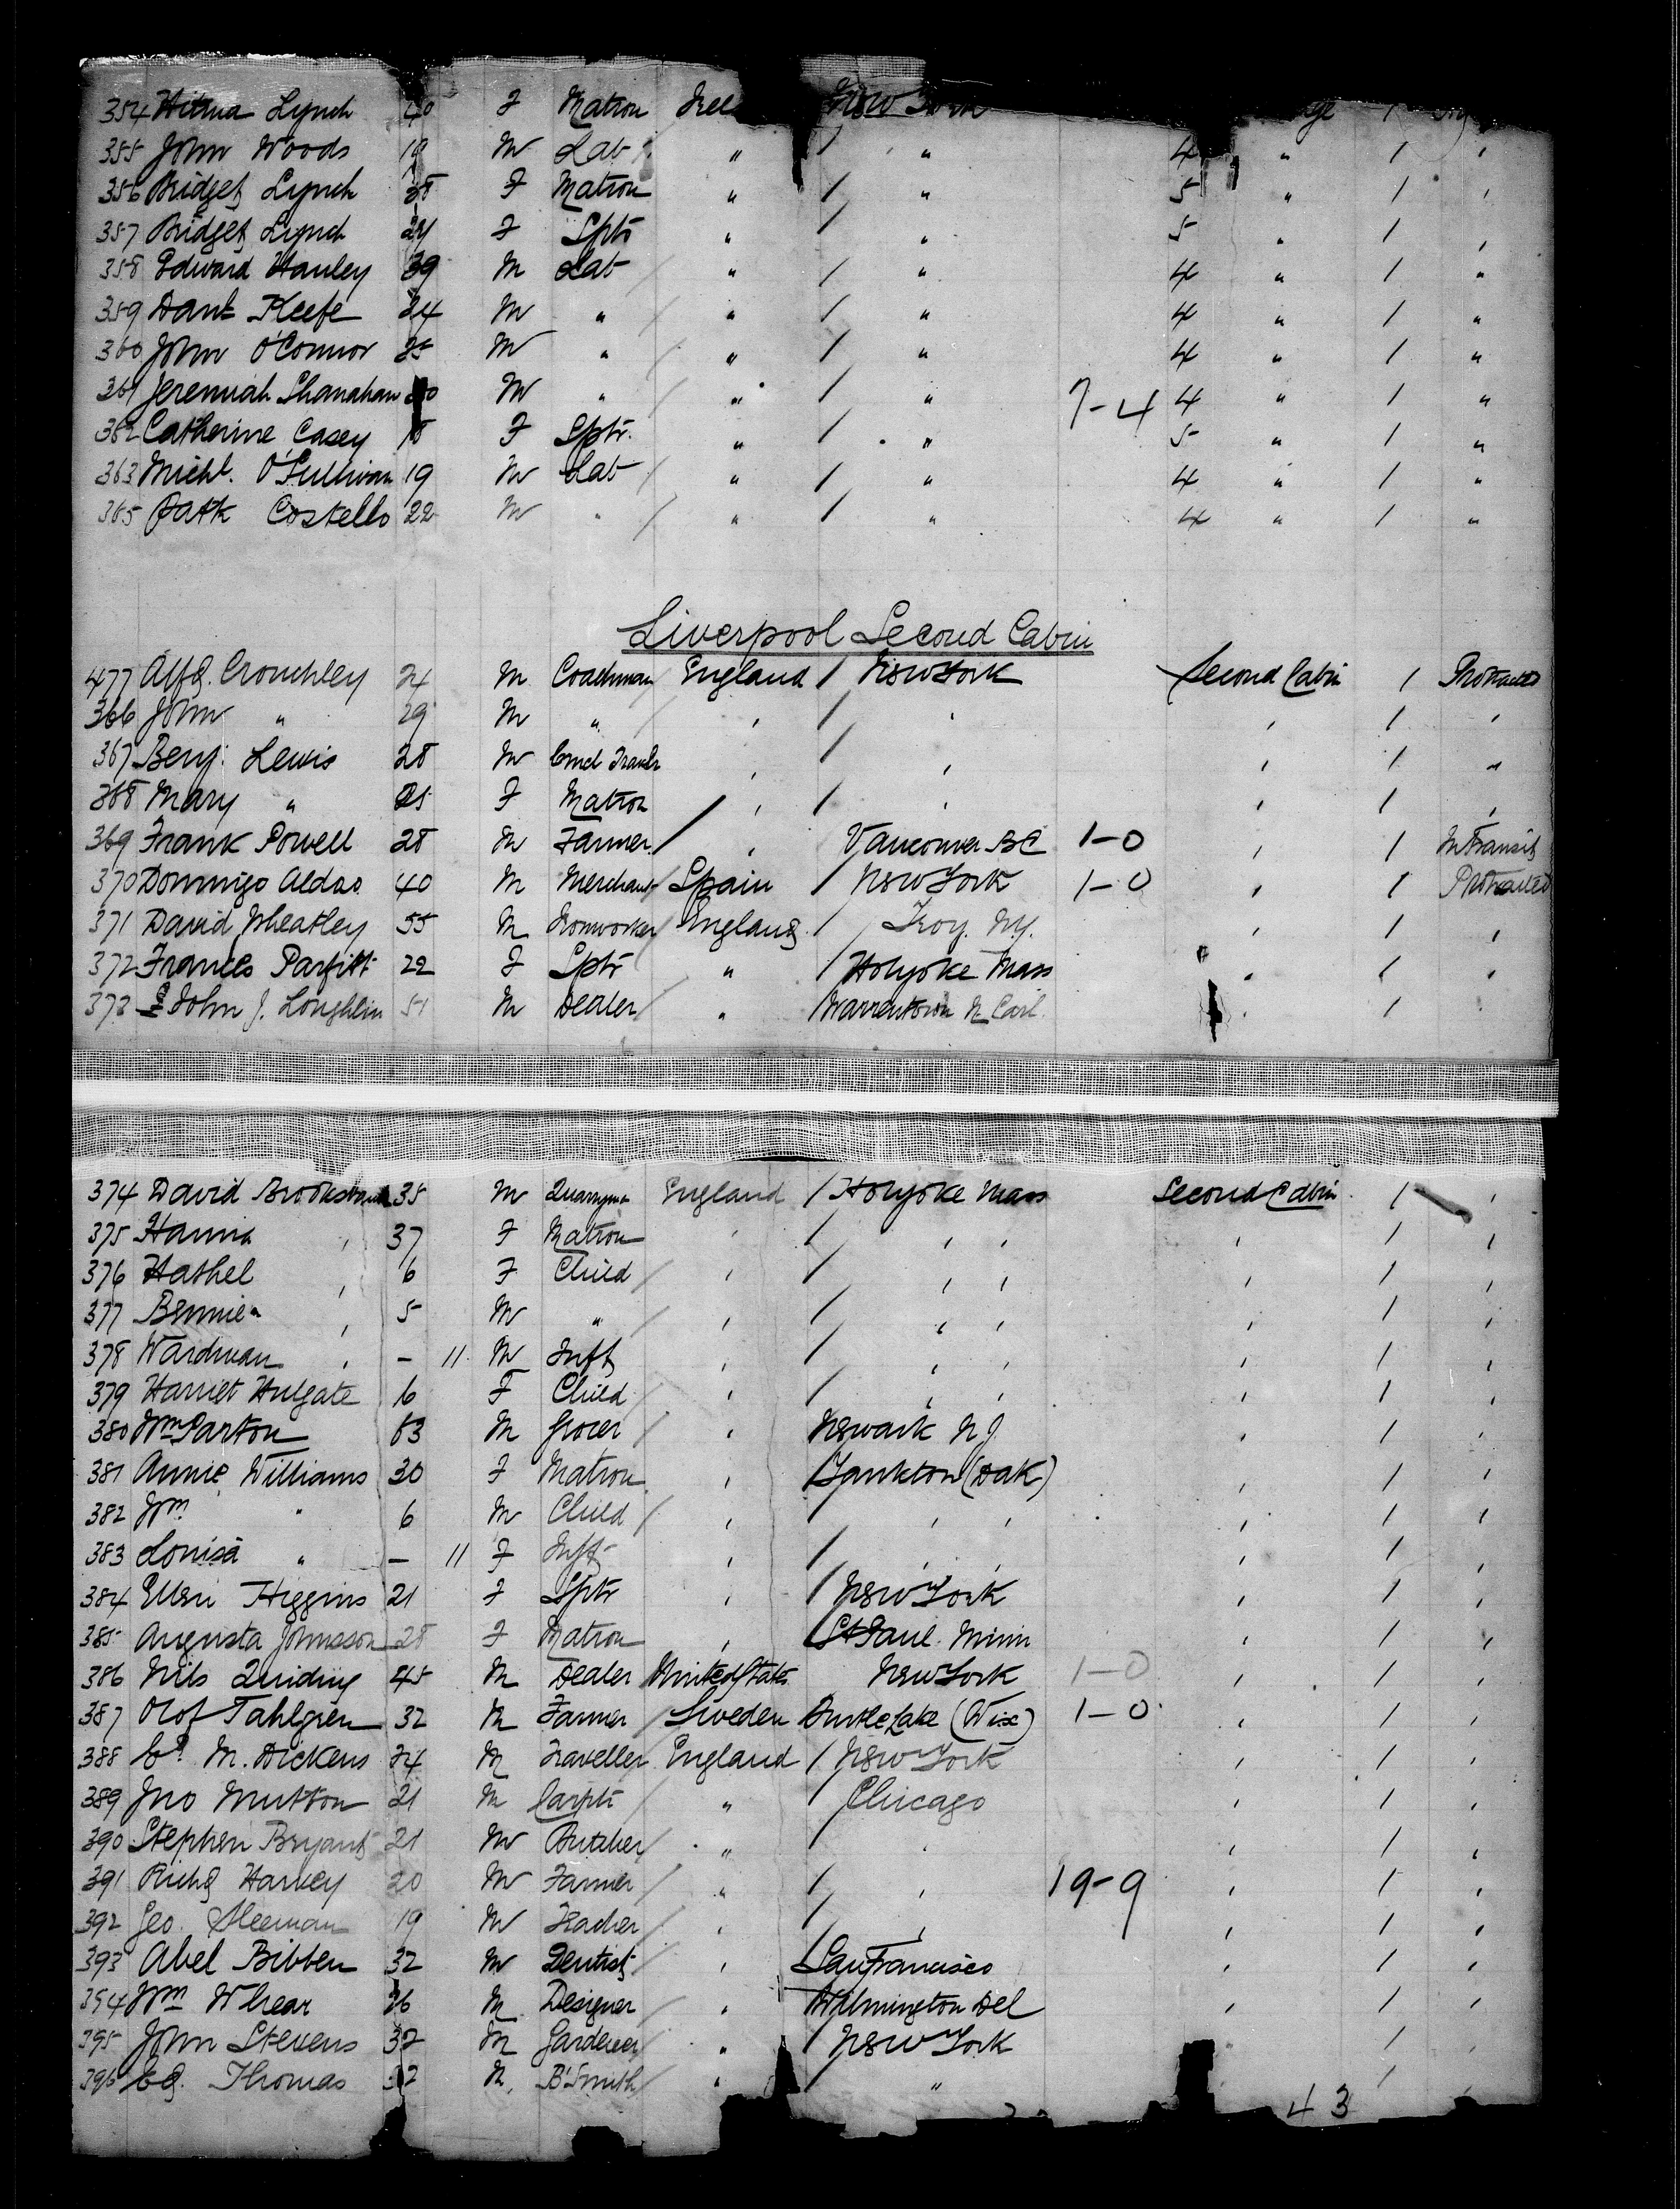 354 Lynch 40 F Matron Irel New York
355 John Woods 19 M Lab " / " 4 " / "
356 Bridget Lynch 38 F Matron " / " 5 " / "
357 Bridget Lynch 24 F Sptr " / " 5 " / "
358 Edward Hanley 39 M Lab " / " 4 " / "
359 Danl Keefe 24 M " / " / " 4 " / "
360 John O'Connor 25 M " / " / " 4 " / "
361 Jeremiah Shanahan M " / " / " 7-4 4 " / "
362 Catherine Casey 18 F Sptr. " / " 5 " / "
363 Michl. O'Sullivan 19 M Lab / " / " 4 " / "
365 Patk Costello 22 M " / " / " 4 " / "
Liverpool Second Cabin
477 Alfd. Crouchley 24 M Coachman England / New York Second Cabin / Protracted
366 John " 29 M " / " / " " / "
367 Benj. Lewis 28 M Comcl Traveler " / " " / "
368 Mary " 25 F Matron / " / " " / "
369 Frank Powell 28 M Farmer / " Vancouver BC 1-0 " / In Transit
370 Domingo Aldao 40 M Merchant Spain / New York 1-0 " / Protracted
371 David Wheatley 55 M Ironworker England / Troy. N.Y. " / "
372 Frances Parfitt 22 F Sptr " / Holyoke Mass " / "
373 John J. Loughlin 51 M Dealer / " / Warrentown N Carl. " /
374 David Brooksbank 35 M Quarryman England / Holyoke Mass Second Cabin / "
375 Hanna " 37 F Matron " / " " " / "
376 Hathel " 6 F Child / " / " " " / "
377 Bennie " 5 M " / " / " " " / "
378 Wardman " - 11 M Inft " / " " " / "
379 Harriet Hulgate 6 F Child / " / " " " / "
380 Wm Parton 63 M Grocer / " Newark N J. " / "
381 Annie Williams 30 F Matron " Yankton (Dak) " / "
382 Wm " 6 M Child / " " " " / "
383 Louisa " - 11 F Inft " / " " " / "
384 Ellen Higgins 21 F Sptr " / New York " / "
385 Augusta Johnsson 28 F Matron " St Paul. Minn " / "
386 Nils Quiding 45 M Dealer United States New York 1-0 " / "
387 Olof Tahlgren 32 M Farmer / Sweden Turtle Lake (Wix) 1-0 " / "
388 M. Dickens 24 M Traveller England / New York " / "
389 Jno Mutton 21 M Carptr " / Chicago " / "
390 Stephen Bryant 21 M Butcher / " / " " / "
391 Richd Harvey 20 M Farmer / " / " 19-9 " / "
392 Geo. Sleeman 19 M Teacher / " / " " / "
393 Abel Bibben 32 M Dentist " San Francisco " / "
394 Wm Whear 36 M Designer " Wilmington Del " / "
395 John Stevens 32 M Gardener / " / New York / "
396 Thomas 32 M. B'Smith / " " / "
43